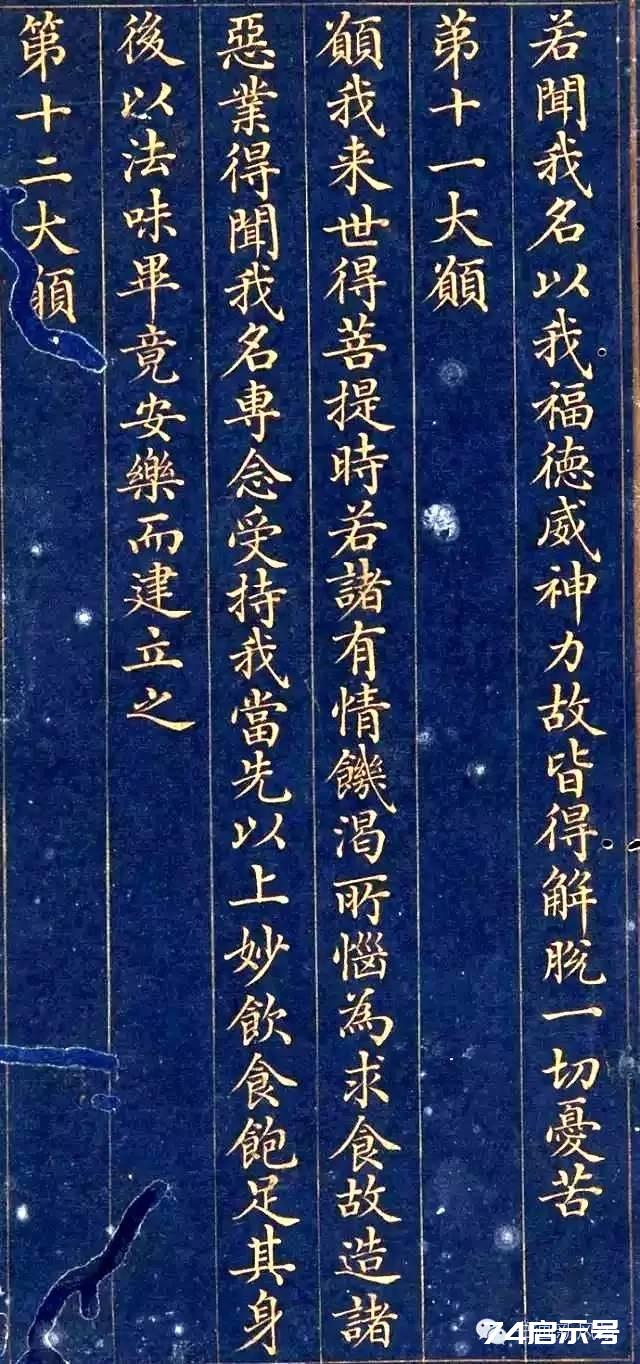 若聞我名以我福徳威神力故皆得解脫一切憂苦
苐十一大願
願我来世得菩提時若諸有情饑渴所惱為求食故造諸
惡業得聞我名專念受持我當先以上妙飲食飽足其身
後以法味畢竟安樂而建立之
第十二大願
74启示号